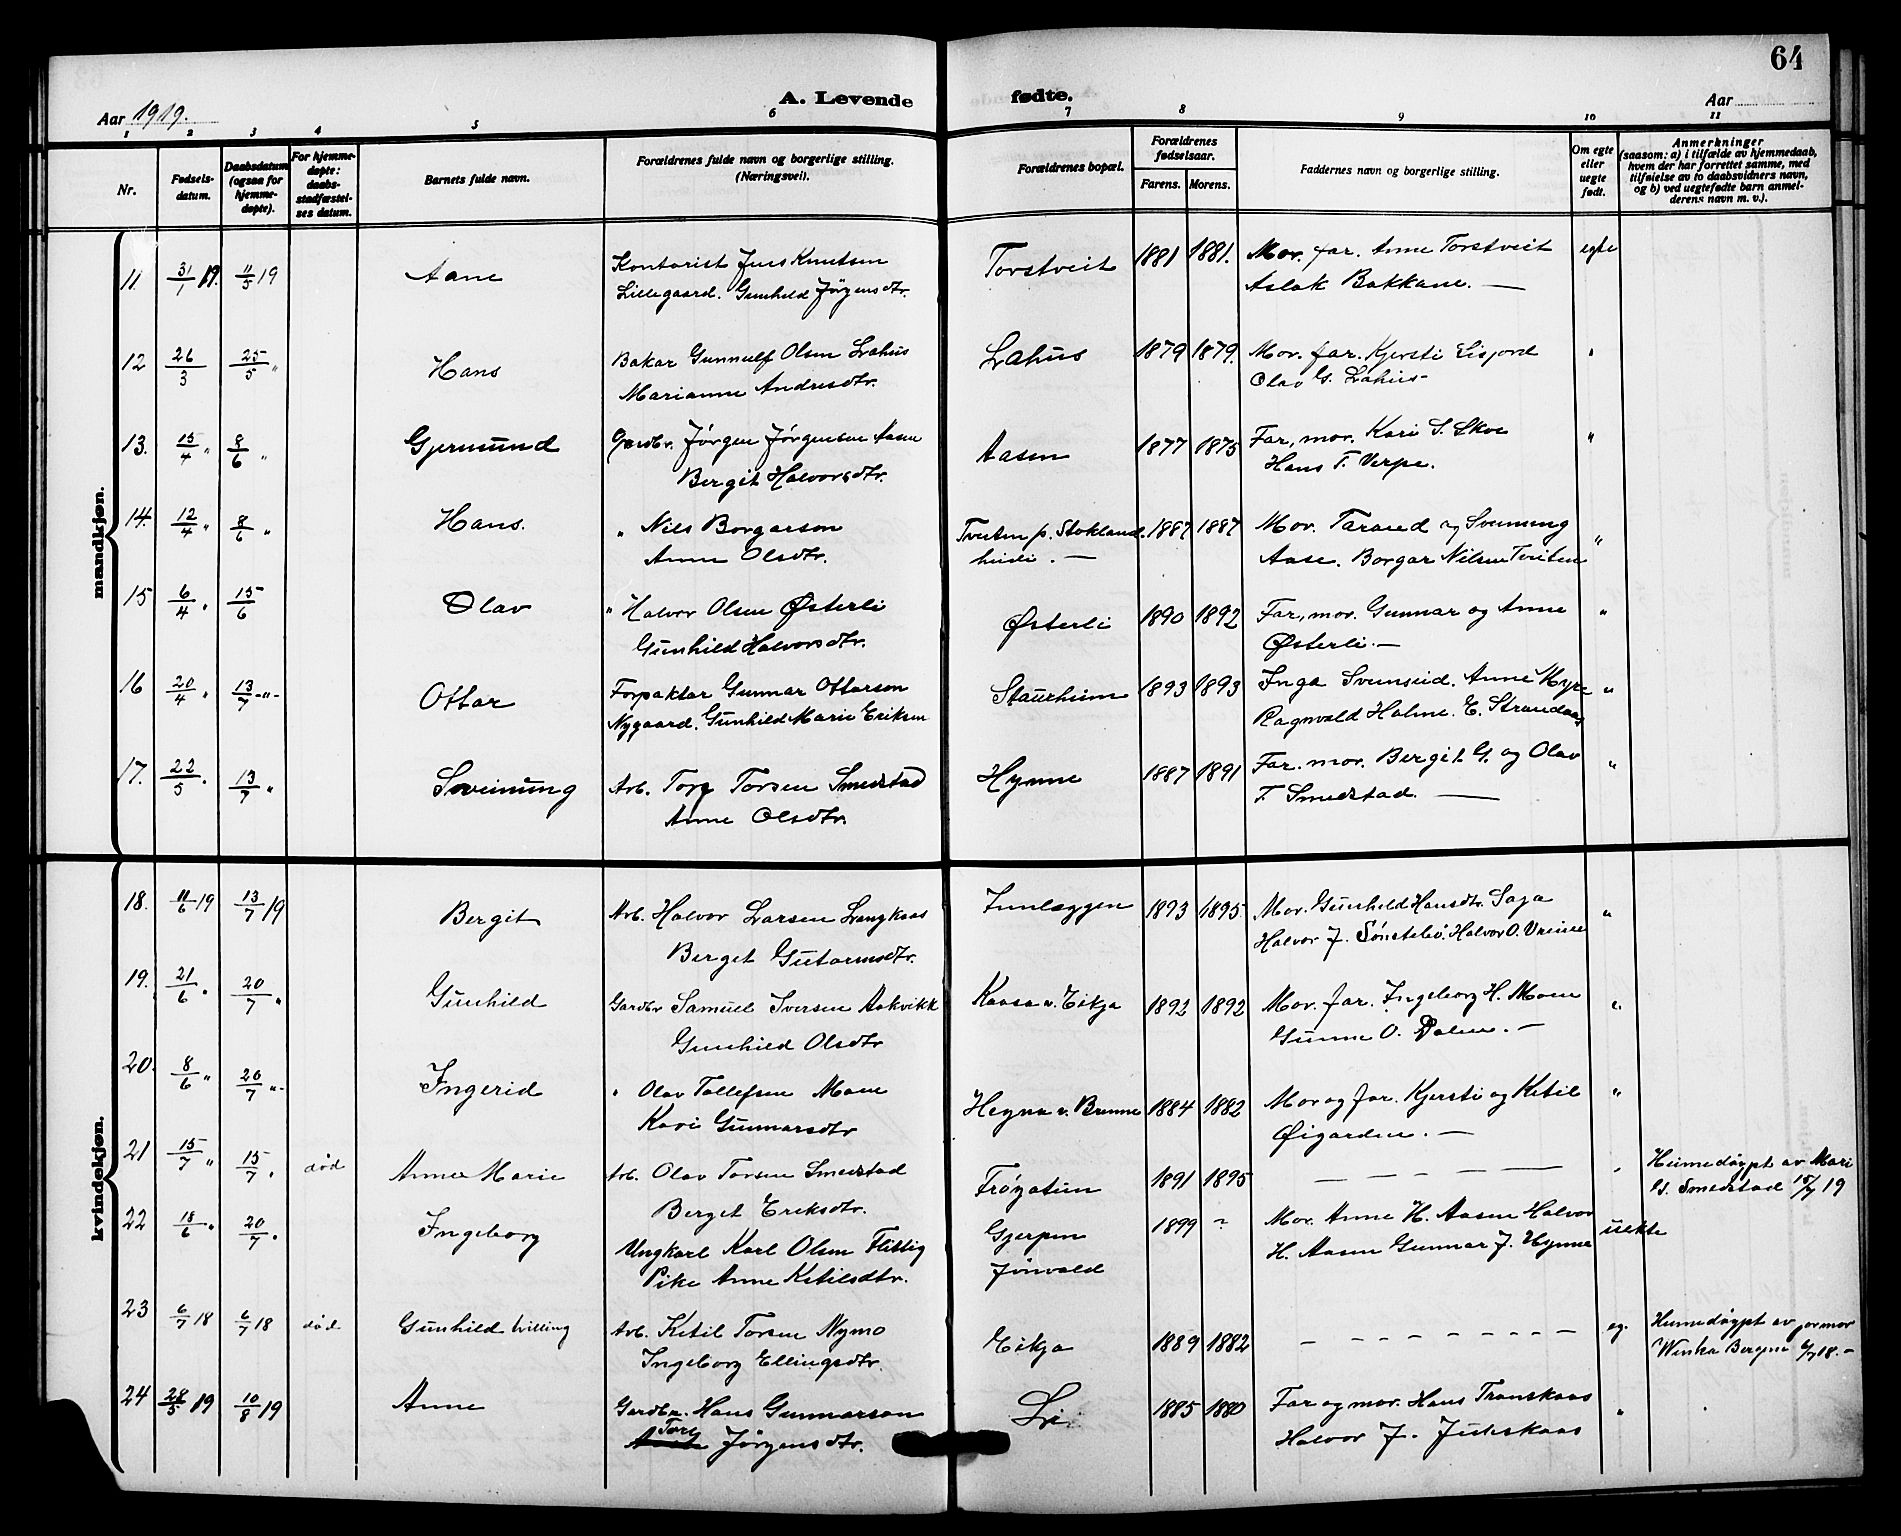 64
A. Levende fødte.
Aar 1919. Aar
1 2 3 4 5 6 7 8 9 10 11
Nr. | Fødselsdatum. | Daabsdatum (ogsaa for hjemmedøpte). | For hjemmedøpte: daabsstadfæstelses datum. | Barnets fulde navn. | Forældrenes fulde navn og borgerlige stilling. (Næringsvei). | Forældrenes bopæl. | Forældrenes fødselsaar. Farens. Morens. | Faddernes navn og borgerlige stilling. | Om egte eller uegte født. | Anmerkninger (saasom: a) i tilfælde av hjemmedaab, hvem der har forrettet samme, med tilføielse av to daabsvidners navn, og b) ved uegtefødte barn anmelderens navn m. v.).
mandkjøn.
11 31/1 19. 11/5 19 Aane Kontorist Jens Knutsen Torstveit 1881 1881. Mor. far. Anne Torstveit egte
Lillegaard. Gunhild Jørgensdtr. Aslak Bakkane. —
12 26/3 25/5 " Hans Bakar Gunnulf Olsen Lahus Lahus 1879 1879. Mor. far. Kjersti Eisjord "
Marianne Andresdtr. Olav G. Lahus-
13. 15/4 " 8/6 " Gjermund Gardbr. Jørgen Jørgensen Aasen Aasen 1877 1875 Far, mor. Kari S. Skoe "
Bergit Halvorsdtr. Hans T. Verpe.
14. 12/4 " 8/6 " Hans. " Nils Borgarson Tveiten p. Stokland. 1887 1887 Mor. Taraud og Sveinung "
Anne Olsdtr. heidi. — Aase. Borgar Nilsen Tveiten
15 6/4 " 15/6 Olav " Halvor Olsen Østerli Østerli 1890 1892 Far, mor. Gunnar og Anne "
Gunhild Halvorsdtr. Østerli. —
16 20/4 " 13/7 -"- Ottar Forpaktar Gunnar Ottarson Staurheim 1893 1893 Inga Svenseid. Anne Myre "
Nygaard. Gunhild Marie Eriksen Ragnvald Holme. E. Strandaas
17. 22/5 . 13/7 " Sveinung Arb. Tor Torsen Smedstad Hynne 1887 1891 Far. mor. Bergit G. og Olav "
Anne Olsdtr. T. Smedstad. —
kvindekjøn.
18. 11/6 19 13/7 19 Bergit Arb. Halvor Larsen Langkaas Innlæggen 1893 1895 Mor. Gunhild Hansdtr. Saga "
Berget Gutormsdtr. Halvor J. Sønstebø. Halvor O.
19. 21/6 . 20/7 " Gunhild Gardbr Samuel Iversen Aakvikk Kaasa v. Eikja 1892 1892 Mor. far. Ingeborg H. Moen "
Gunhild Olsdtr Gunne O. Dalen. —
20. 8/6 " 20/7 "- Ingerid " Olav Tollefsen Moen Hegna v. Brenne 1884 1882 Mor og far. Kjersti og Ketil "
Kari Gunnarsdtr Øigarden. —
21 15/7 " 15/7 . død Anne Marie Arb. Olav Torsen Smedstad Frøyatun 1891 1895 — — — — — . Heimedøypt av Mari
Berget Eriksdtr. G. Smedstad 15/7 19
22 18/6 " 20/7 . Ingeborg Ungkarl Karl Olsen Flittig Gjerpen 1899 ? Mor. Anne H. Aasen Halvor uekte
Pike Anne Ketilsdtr. Jønvald H. Aasen Gunnar J. Hynne
23 6/7 18 6/7 18 død Gunhild tvilling Arb. Ketil Torsen Nymo Eikja 1889 1882 — — — — — — — — eg. Heimedøypt av jormor
Ingeborg Ellingsdtr. Winka Bergene 6/7 18. -
24 28/5 19 10/8 19 Anne Gardbr. Hans Gunnarson Li 1885 1880 Far og mor. Hans Transkaas "
Tore Jørgensdtr. Halvor J. Juteskaas